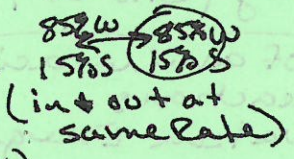 85% W 85% W
15% S 15% S
(in & out at
same Rate)